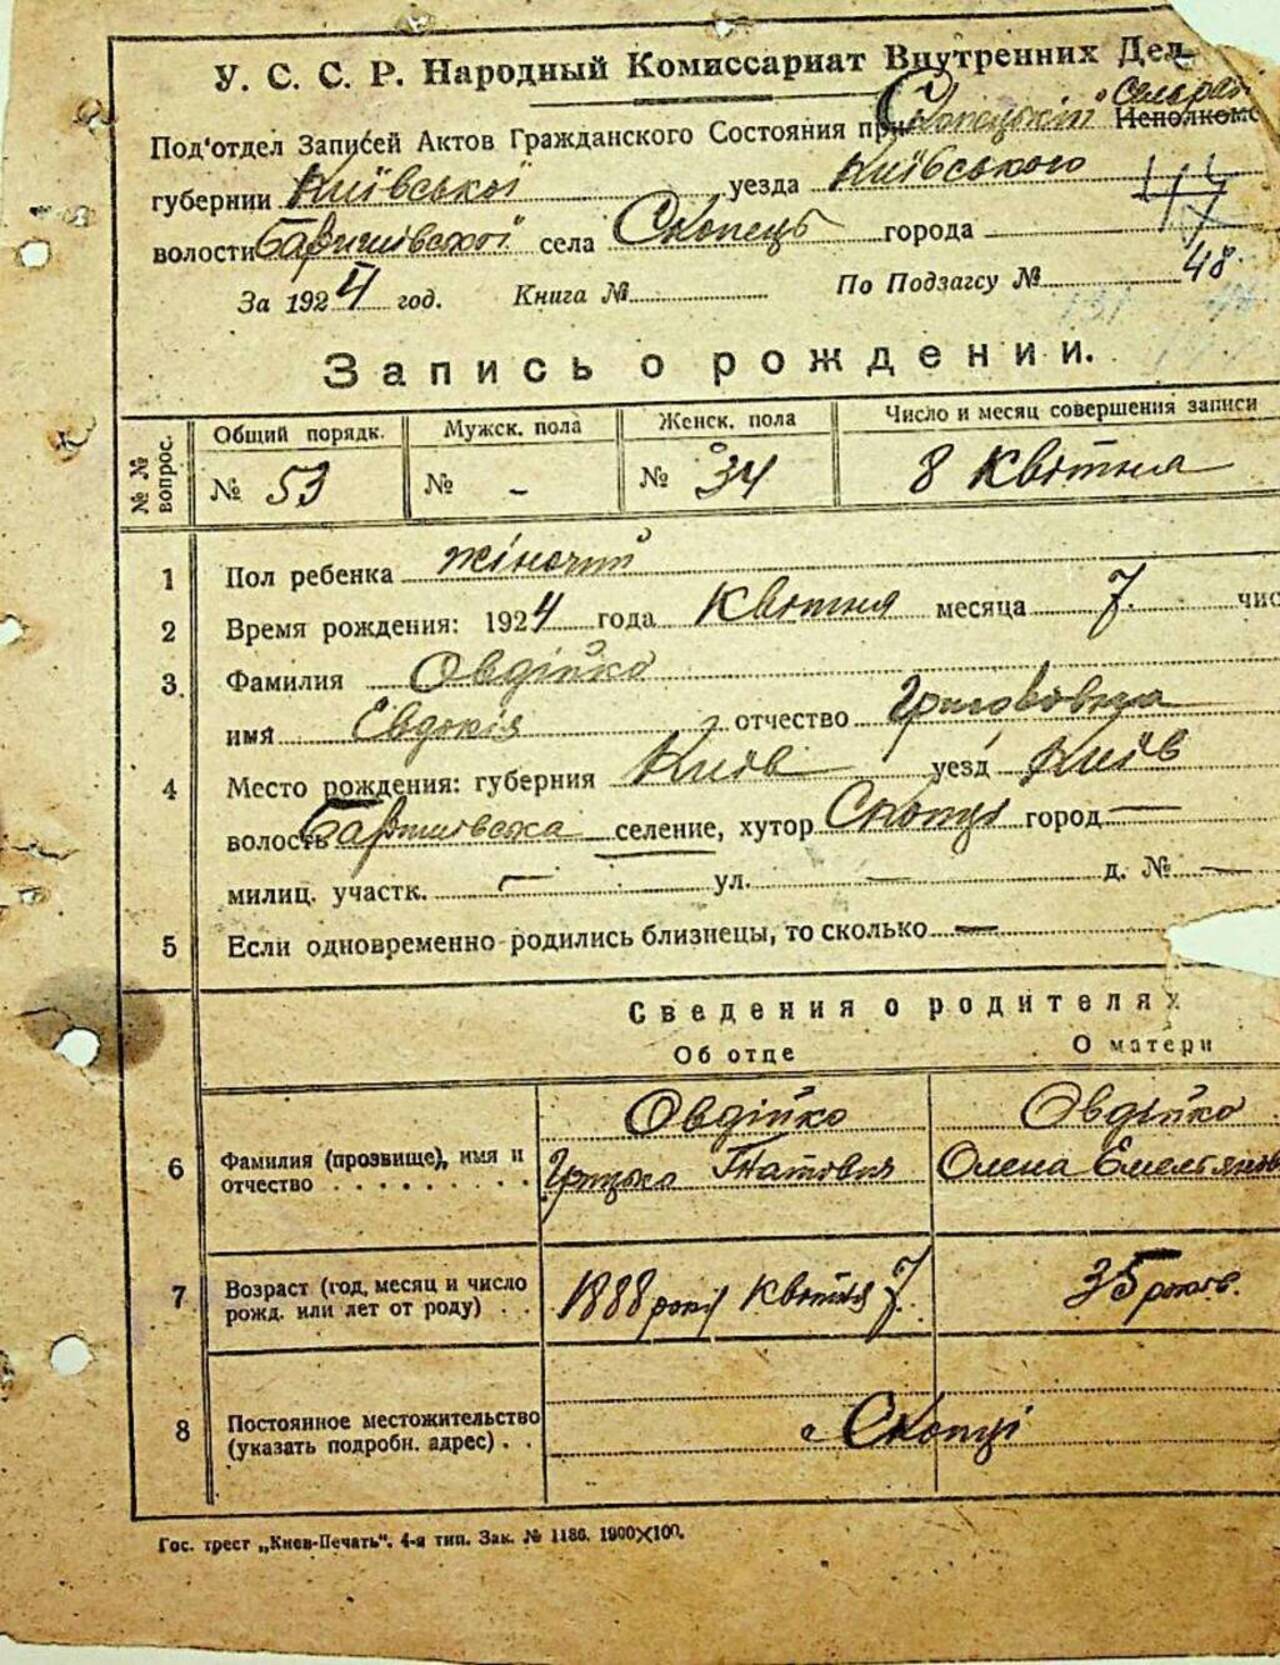 У. С. С. Р. Народный Комиссариат Внутренних Дел
Под'отдел Записей Актов Гражданского Состояния при Скопецькій Сельраді Исполкоме
губернии Київської уезда Київського 
волости Баришівської села Скопець города —
48.
За 1924 год. Книга № По Подзагсу №
Запись о рождении.
№ № вопрос. Общий порядк. Мужск. пола Женск. пола Число и месяц совершения записи
№ 53 № - № 34 8 Квітня
1 Пол ребенка жіночий
2 Время рождения: 1924 года Квітня месяца 7. чис
3 Фамилия Овдійко
имя Євдокія отчество Григоровна
4 Место рождения: губерния Київ уезд Київ
волость Баришівська селение, хутор Скопці город —
милиц. участк. — ул. — д. № —
5 Если одновременно родились близнецы, то сколько —
Сведения о родителях
Об отце О матери
Овдійко Овдійко
6 Фамилия (прозвище), имя и отчество Грицько Гнатович Олена Емельянов
7 Возраст (год, месяц и число рожд. или лет от роду) 1888 року Квітня 7. 35 років.
8 Постоянное местожительство (указать подробн. адрес) с Скопці
Гос. трест „Киев-Печать". 4-я тип. Зак. № 1186. 1900×100.